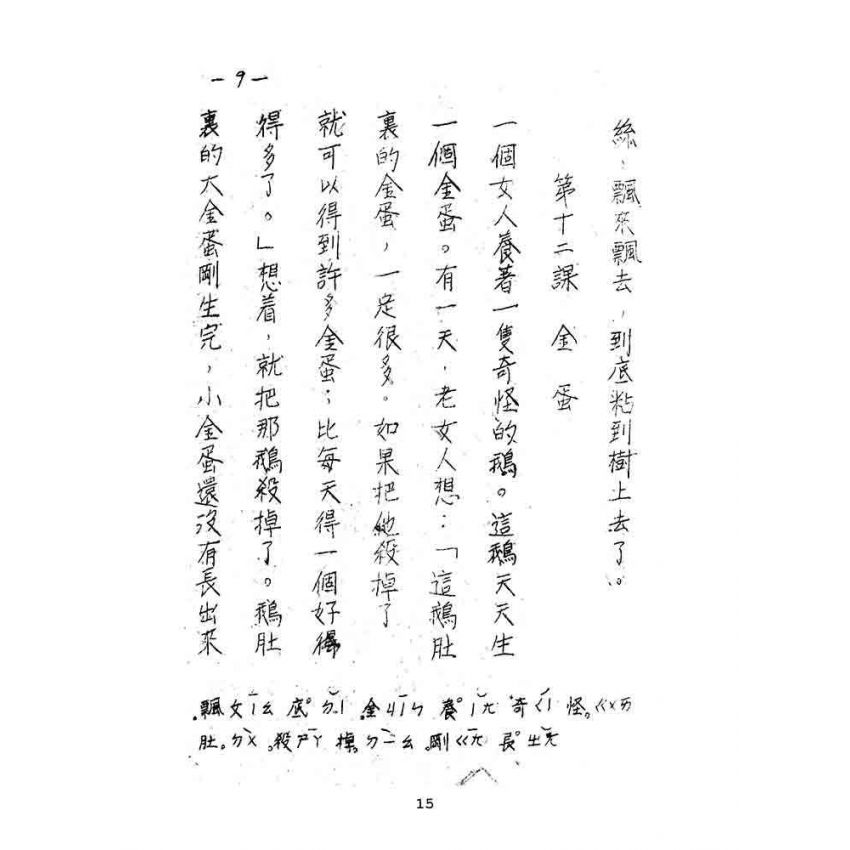 －9－
絲，飄來飄去，到底粘到樹上去了。
第十二課　金　蛋
一個女人養著一隻奇怪的鵝。這鵝天天生
一個金蛋。有一天，老女人想：「這鵝肚
裏的金蛋，一定很多。如果把她殺掉了
就可以得到許多金蛋；比每天得一個好得
得多了。」想着，就把那鵝殺掉了。鵝肚
裏的大金蛋剛生完，小金蛋還沒有長出來
飄ㄆㄧㄠ 底ㄉㄧˇ 金ㄐㄧㄣ 養ㄧㄤˇ 奇ㄑㄧˊ 怪ㄍㄨㄞ
肚ㄉㄨˋ 殺ㄕㄚ 掉ㄉㄧㄠˋ 剛ㄍㄤ 長ㄓㄤˇ
15